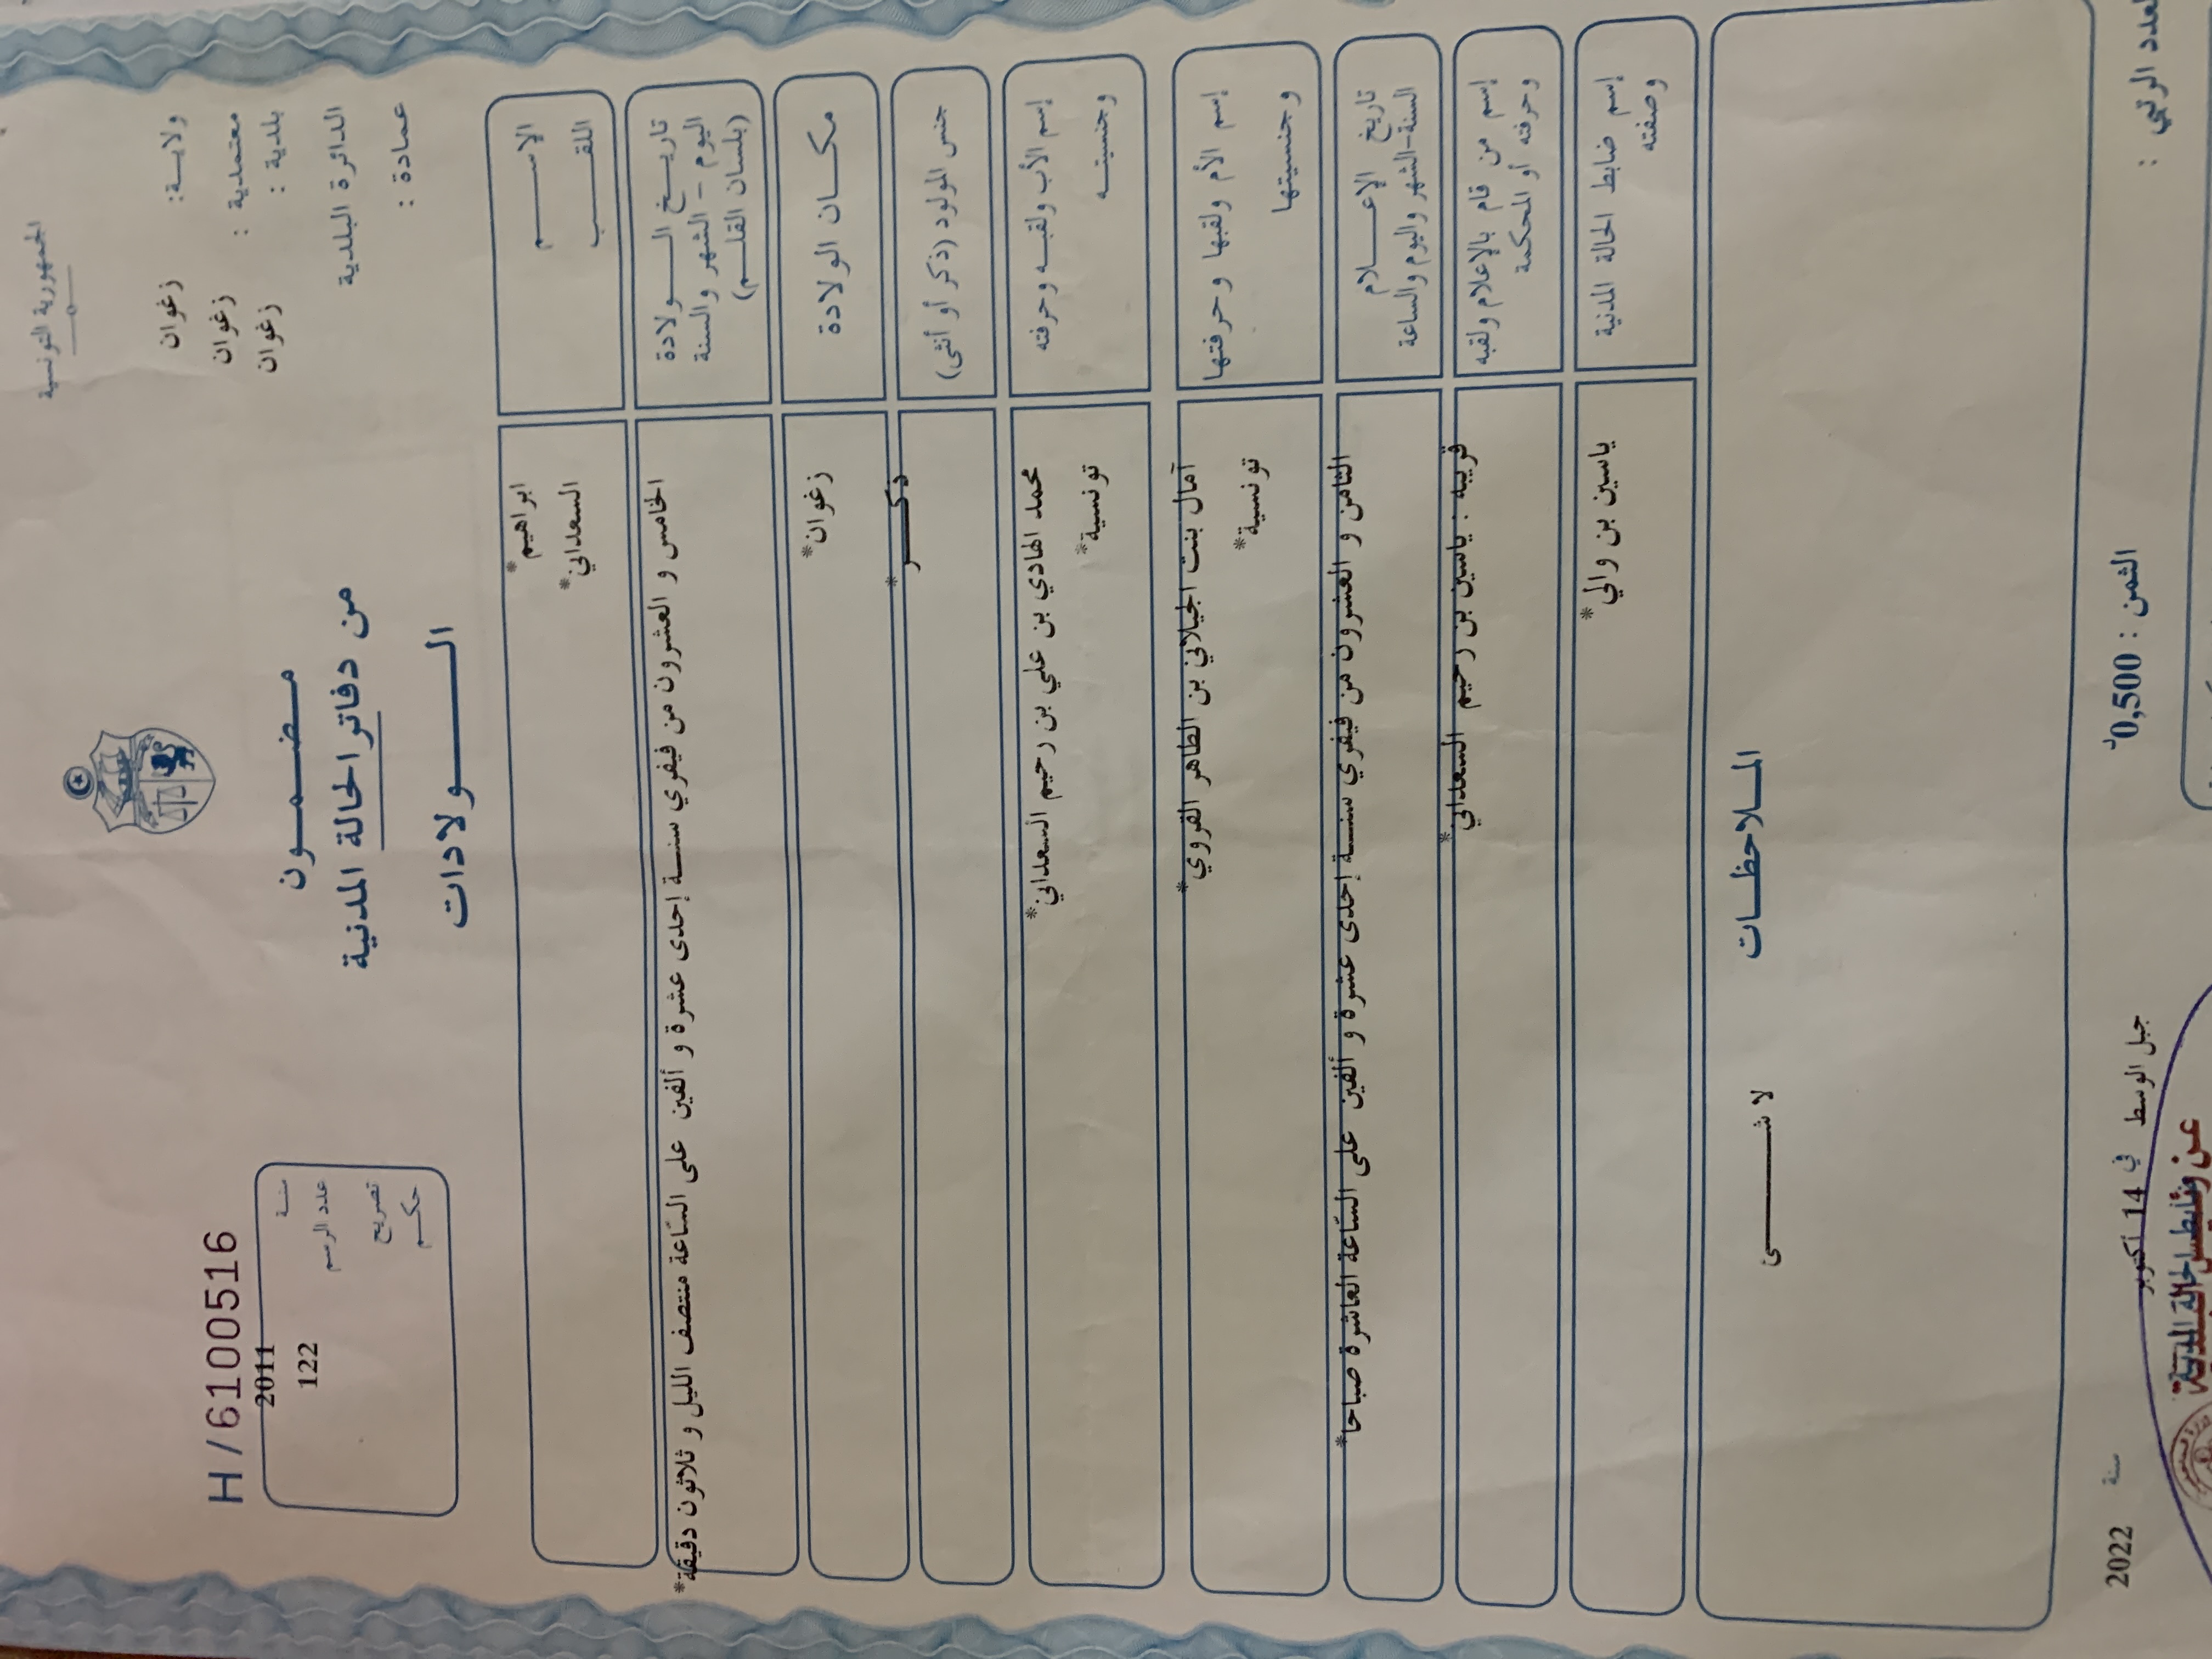 الجمهورية التونسية
ولاية: زغوان
معتمدية : زغوان
بلدية : زغوان
الدائرة البلدية
عمادة :
مضمون
من دفاتر الحالة المدنية
الولادات
H/6100516
سنة 2011
عدد الرسم 122
تصريح
حكم
الاسم ابراهيم*
اللقب السعداني*
تاريخ الولادة
اليوم - الشهر والسنة
(بلسان القلم)
الخامس و العشرون من فيفري سنة إحدى عشرة و ألفين على السّاعة منتصف الليل و ثلاثون دقيقة*
مكان الولادة زغوان*
جنس المولود (ذكر أو أنثى) ذكر*
إسم الأب ولقبه وحرفته محمد الهادي بن علي بن رحيم السعداني*
وجنسيته تونسية*
إسم الأم ولقبها وحرفتها آمال بنت الجيلاني بن الطاهر القروي*
وجنسيتها تونسية*
تاريخ الإعلام
السنة-الشهر واليوم والساعة
الثامن و العشرون من فيفري سنة إحدى عشرة و ألفين على السّاعة العاشرة صباحا*
إسم من قام بالإعلام ولقبه
وحرفته أو المحكمة
قريبه : ياسين بن رحيم السعداني*
إسم ضابط الحالة المدنية
وصفته
ياسين بن والي*
الملاحظات
لا شئ
جبل الوسط في 14 أكتوبر سنة 2022
الثمن : 0,500د
العدد الرتبي :